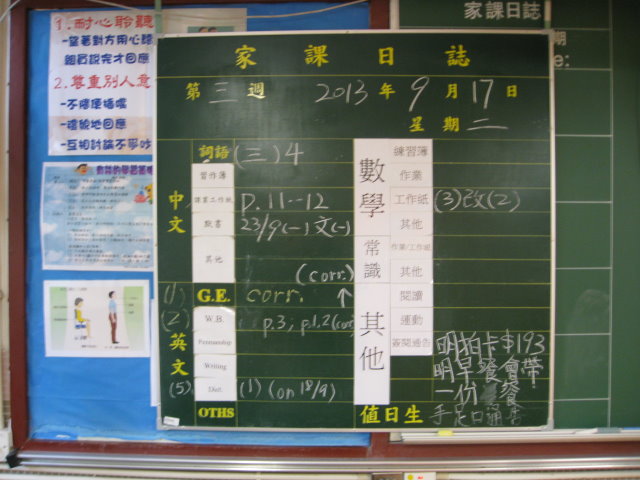 1. 耐心聆聽
-望著對方用心聽
組員說完才回應
2. 尊重別人意
-不隨便插嘴
-禮貌地回應
-互相討論不爭吵
家課日誌
家課日誌
期
e:
第三週 2013年9月17日
星期二
中文
詞語 (三)4
習作簿
課業工作紙 p.11--12
默書 23/9(一)文(一)
其他
(corr.)
(1) G.E. corr. ↑
英文
(2) W.B. p.3, p.1,2(corr)
Penmanship
Writing
(5) Dict. (1) (on 18/9)
OTHS
數學
練習簿
作業
工作紙 (3)改(2)
其他
常識
作業/工作紙
其他
其他
閱讀
運動
簽閱通告
明拍卡$193
明早餐會帶
一份
手足口
值日生